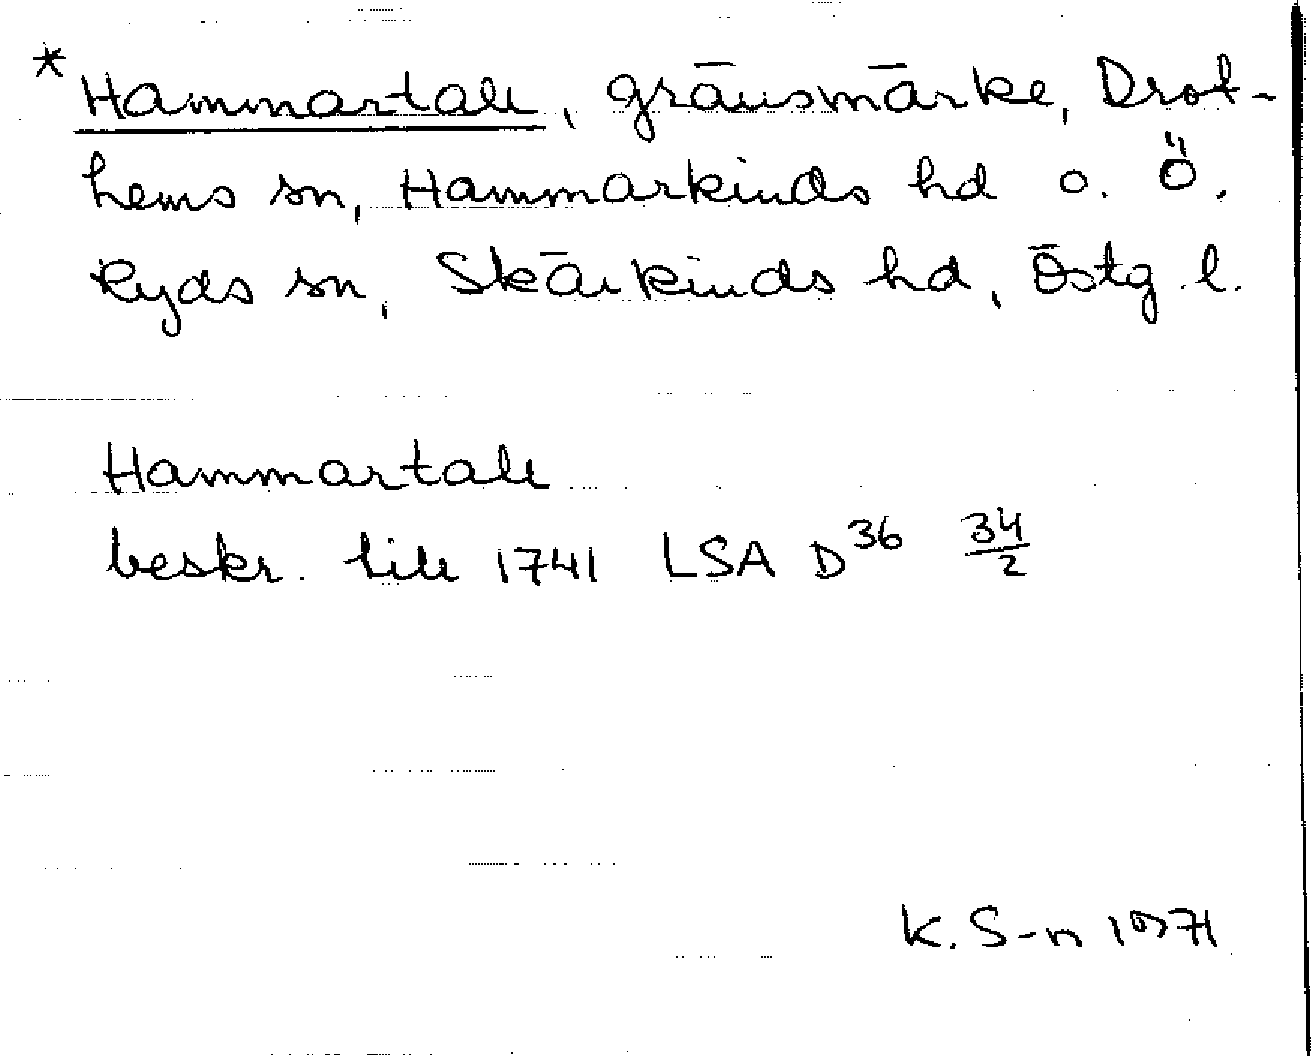 *Hammartall, gränsmärke, Drot-
hems sn, Hammarkinds hd o. Ö.
Ryds sn, Skärkinds hd, Östg. l.
Hammartall
beskr. till 1741 LSA D36 34/2
K. S-n 1971